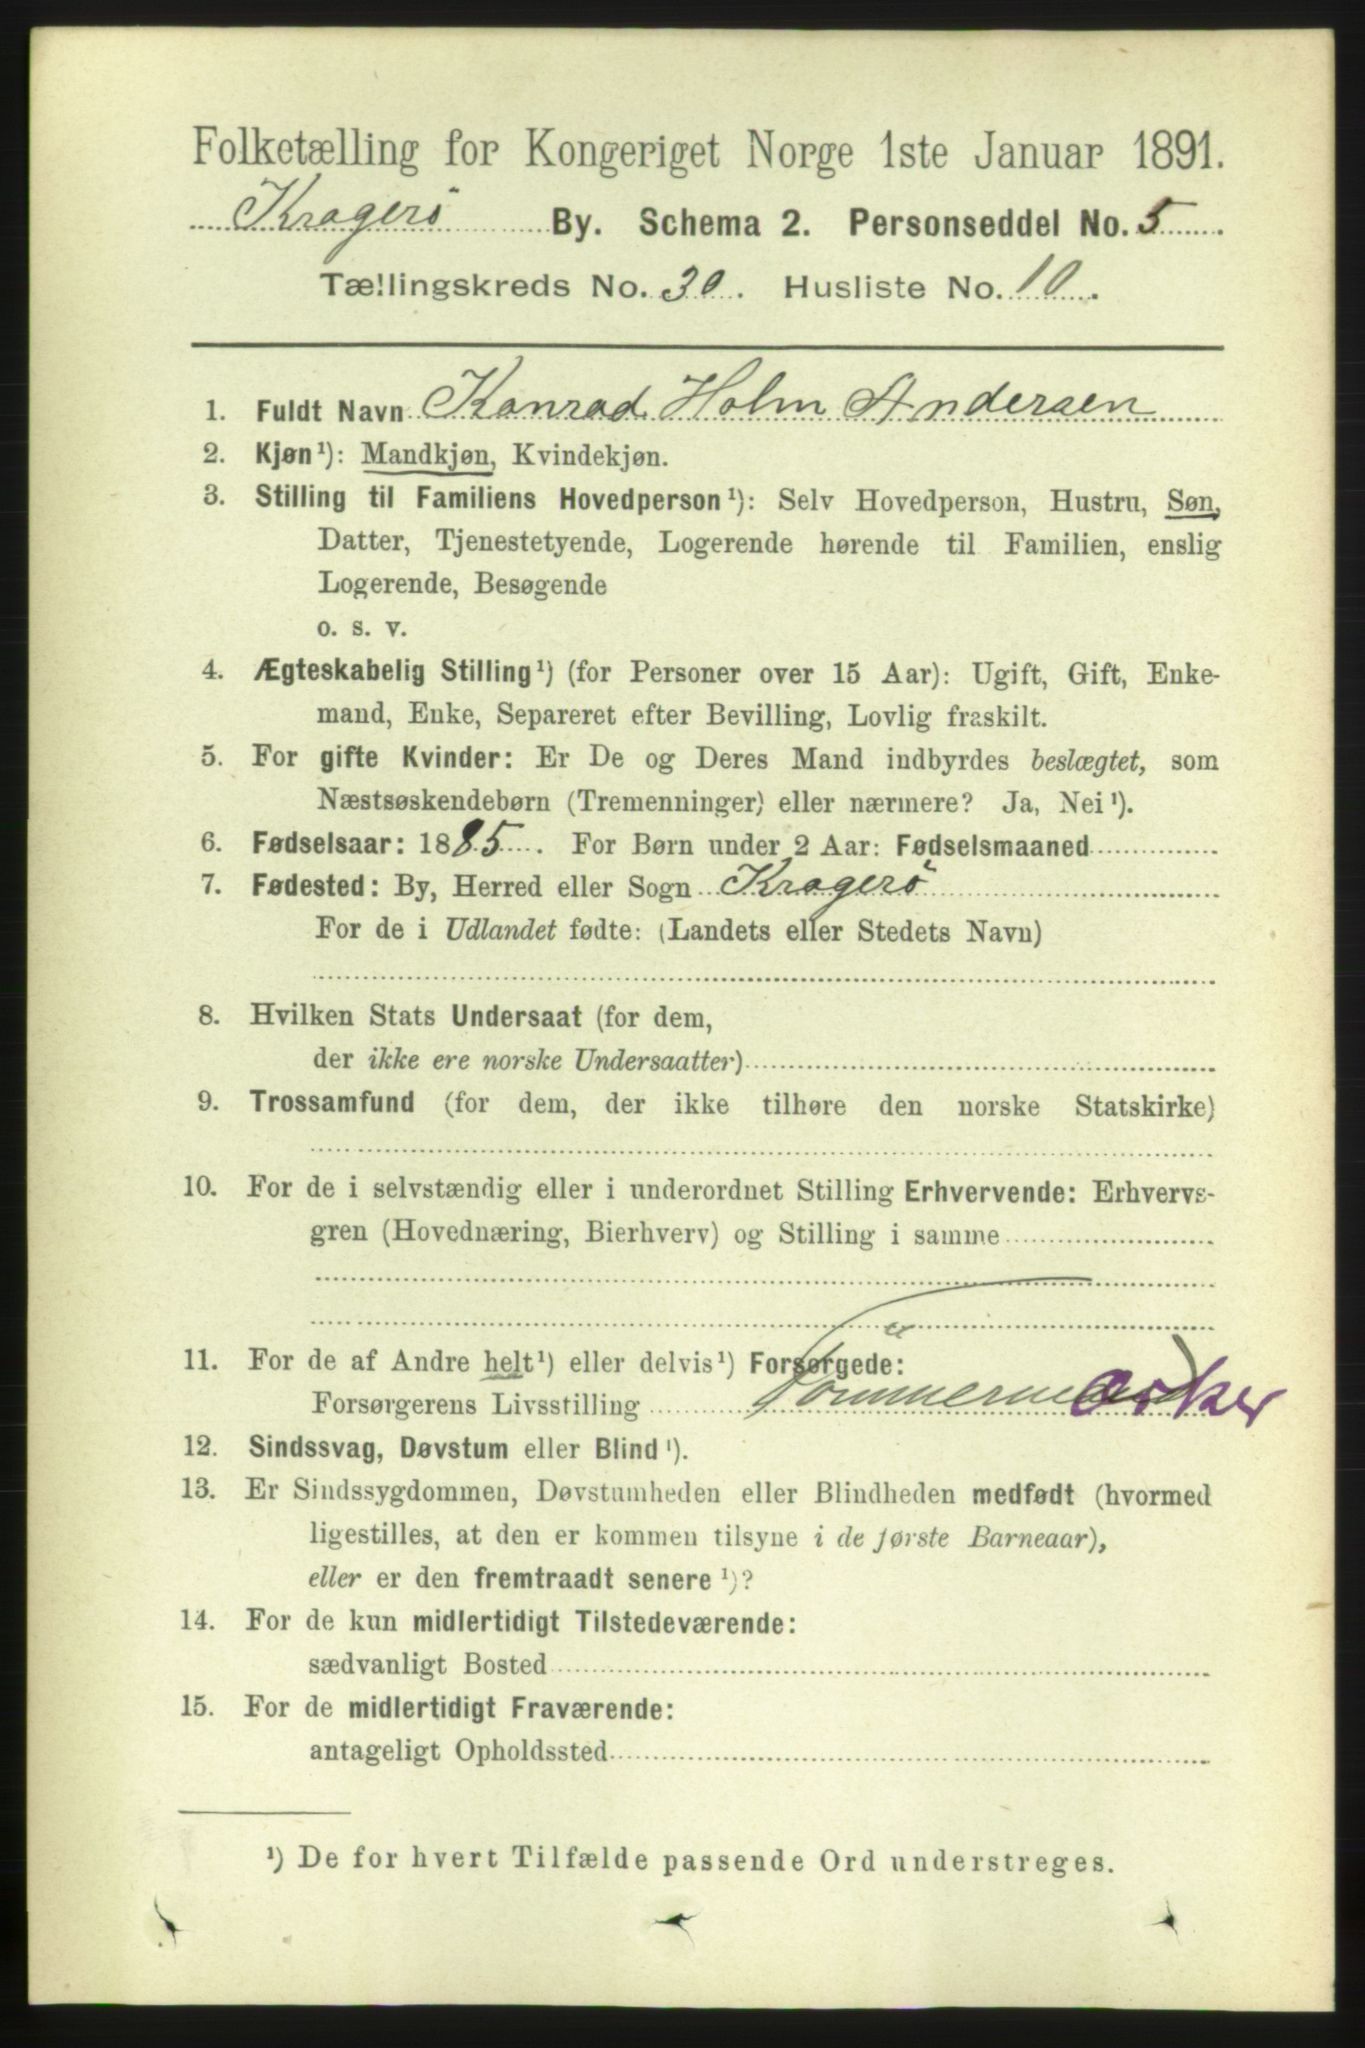 Folketælling for Kongeriget Norge 1ste Januar 1891.
Kragerö By. Schema 2. Personseddel No. 5
Tællingskreds No. 30. Husliste No. 10.
1. Fuldt Navn Konrad Holm Andersen
2. Kjøn¹): Mandkjøn, Kvindekjøn.
3. Stilling til Familiens Hovedperson¹): Selv Hovedperson, Hustru, Søn,
Datter, Tjenestetyende, Logerende hørende til Familien, enslig
Logerende, Besøgende
o. s. v.
4. Ægteskabelig Stilling¹) (for Personer over 15 Aar): Ugift, Gift, Enke-
mand, Enke, Separeret efter Bevilling, Lovlig fraskilt.
5. For gifte Kvinder: Er De og Deres Mand indbyrdes beslægtet, som
Næstsøskendebørn (Tremenninger) eller nærmere? Ja, Nei¹).
6. Fødselsaar: 1885. For Børn under 2 Aar: Fødselsmaaned
7. Fødested: By, Herred eller Sogn Kragerö
For de i Udlandet fødte: (Landets eller Stedets Navn)
8. Hvilken Stats Undersaat (for dem,
der ikke ere norske Undersaatter)
9. Trossamfund (for dem, der ikke tilhøre den norske Statskirke)
10. For de i selvstændig eller i underordnet Stilling Erhvervende: Erhvervs-
gren (Hovednæring, Bierhverv) og Stilling i samme
11. For de af Andre helt¹) eller delvis¹) Forsørgede:
Forsørgerens Livsstilling
12. Sindssvag, Døvstum eller Blind¹).
13. Er Sindssygdommen, Døvstumheden eller Blindheden medfødt (hvormed
ligestilles, at den er kommen tilsyne i de første Barneaar),
eller er den fremtraadt senere¹)?
14. For de kun midlertidigt Tilstedeværende:
sædvanligt Bosted
15. For de midlertidigt Fraværende:
antageligt Opholdssted
¹) De for hvert Tilfælde passende Ord understreges.